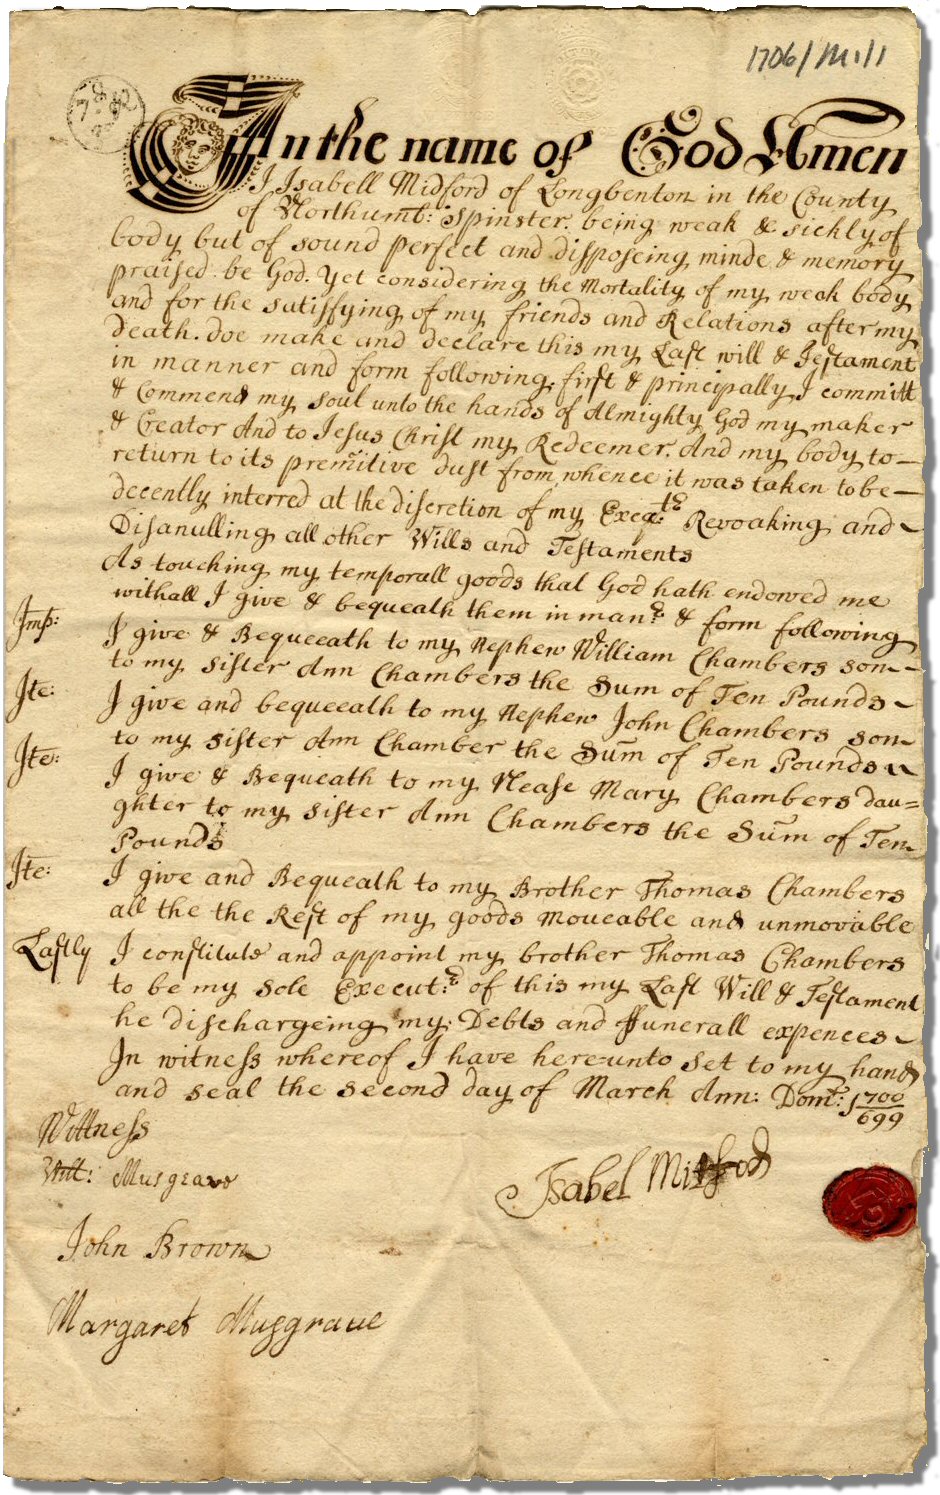 1706/M.1/1
In the name of God Amen
I Isabell Midford of Longbenton in the County
of Northumb: Spinster. being weak & sickly of
body but of sound perfect and disposeing minde & memory
praised be God. Yet considering the Mortality of my weak body
and for the satisfying of my friends and Relations after my
Death. doe make and declare this my Last will & Testament
in manner and form following, first & principally I committ
& Commend my soul unto the hands of Almighty God my maker
& Creator And to Jesus Christ my Redeemer. And my body to—
return to its premitive dust from whence it was taken to be—
decently interred at the discretion of my Exeq:te Revoaking and—
Disanulling all other Wills and Testaments
As touching my temporall goods that God hath endowed me
withall I give & bequeath them in man:r & form following
Imp: I give & Bequeath to my Nephew William Chambers son—
to my sister Ann Chambers the Sum of Ten Pounds—
Ite: I give and bequeeath to my Nephew John Chambers son—
to my sister Ann Chamber the Sum of Ten Pounds
Ite: I give & Bequeath to my Nease Mary Chambers dau=
ghter to my sister Ann Chambers the Sum of Ten
Pounds
Ite: I give and Bequeath to my Brother Thomas Chambers
all the the Rest of my goods moveable and unmovable
Lastly I constitute and appoint my brother Thomas Chambers
to be my sole Execut:r of this my Last Will & Testament
he dischargeing my Debts and ffunerall expences—
In witness whereof I have here=unto set to my hand
and seal the second day of March Ann: Dom: 1700/699
Wittness
Will: Musgrave
Isabel Midford
John Brown
Margaret Musgrave